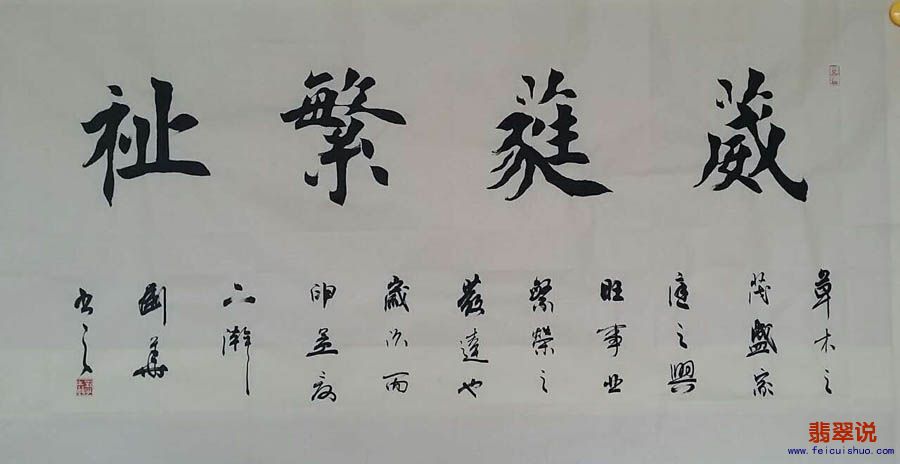 葳蕤繁祉
草木之
茂盛家
庭之興
旺事业
繁榮之
發達也
歲次丙
申孟夏
華
书之
翡翠说
www.feicuishuo.com